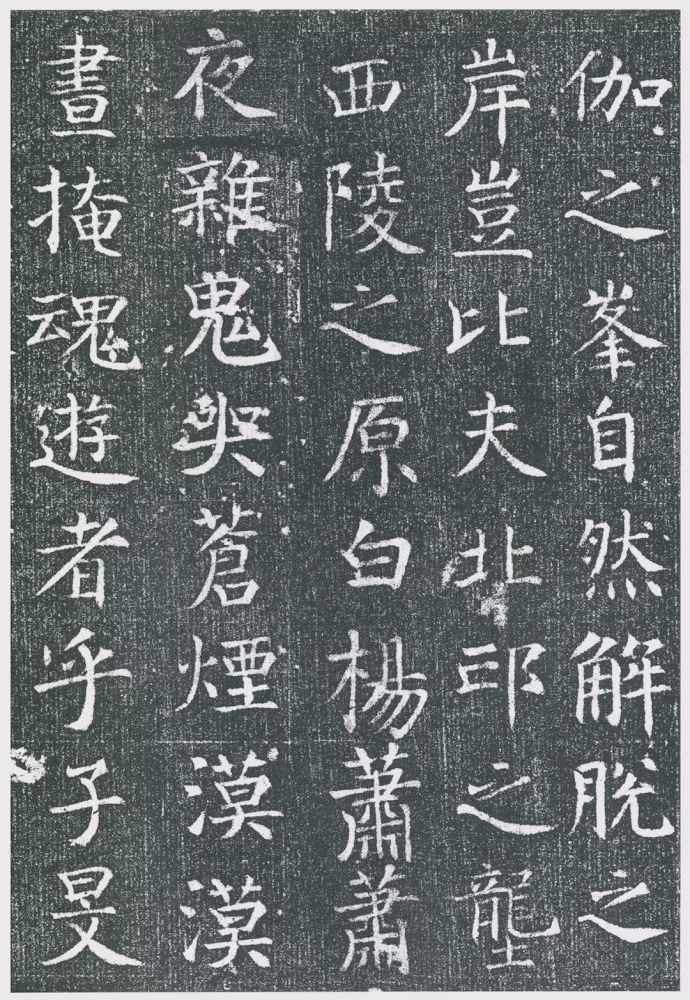 伽之峯自然解脫之
岸豈比夫北邙之壟
西陵之原白楊蕭蕭
夜雜鬼哭蒼煙漠漠
晝掩魂遊者乎子旻